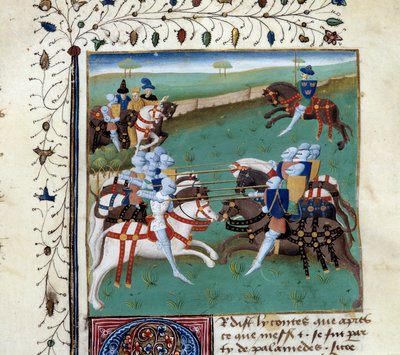 Or dist ly contes que apres
ce que mess t. se fut par
ty de palamedes. sicoe